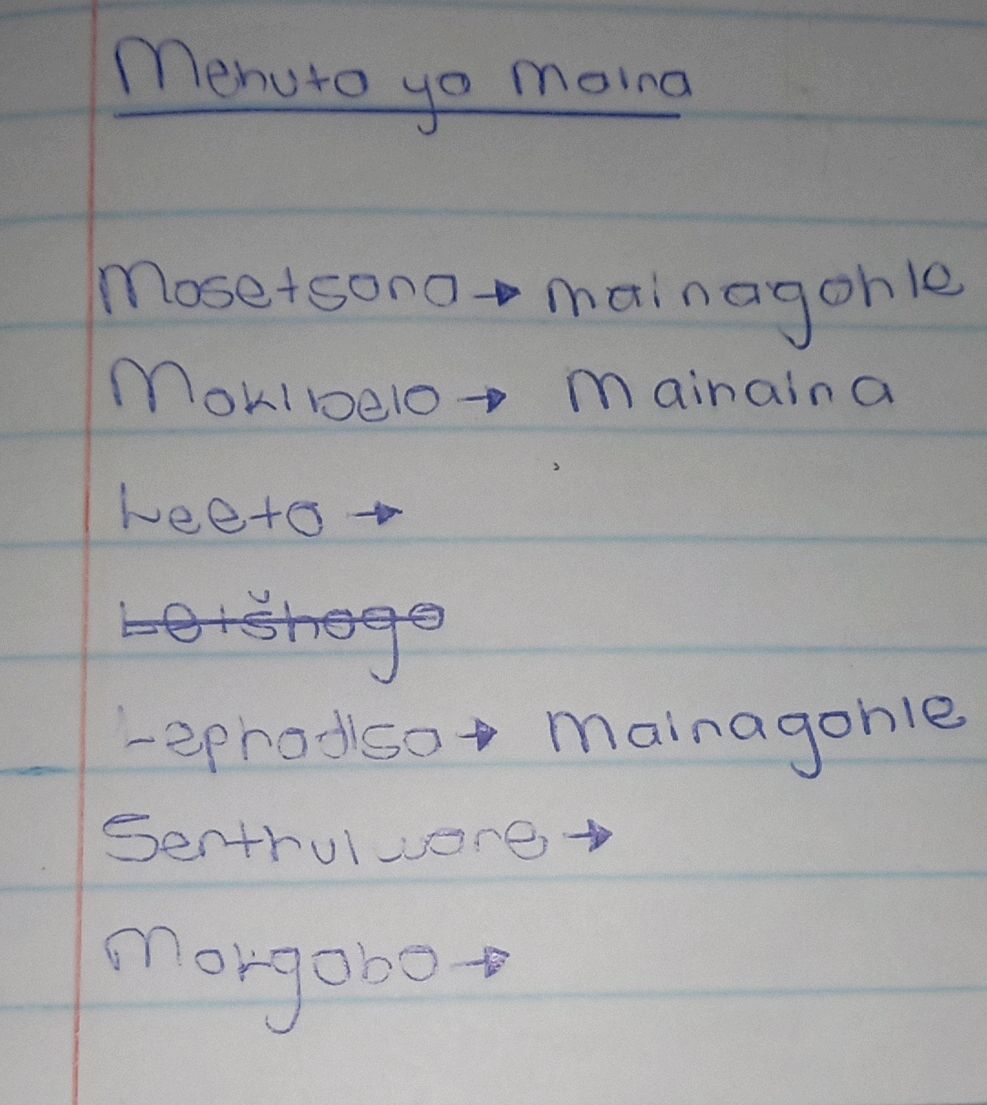 Mehuto ya maina
Mosetsana → mainagohle
Mokibelo → Mainaina
Leeto →
Letšhogo
Lephodisa → Mainagohle
Senthulwane →
Mokgobo →